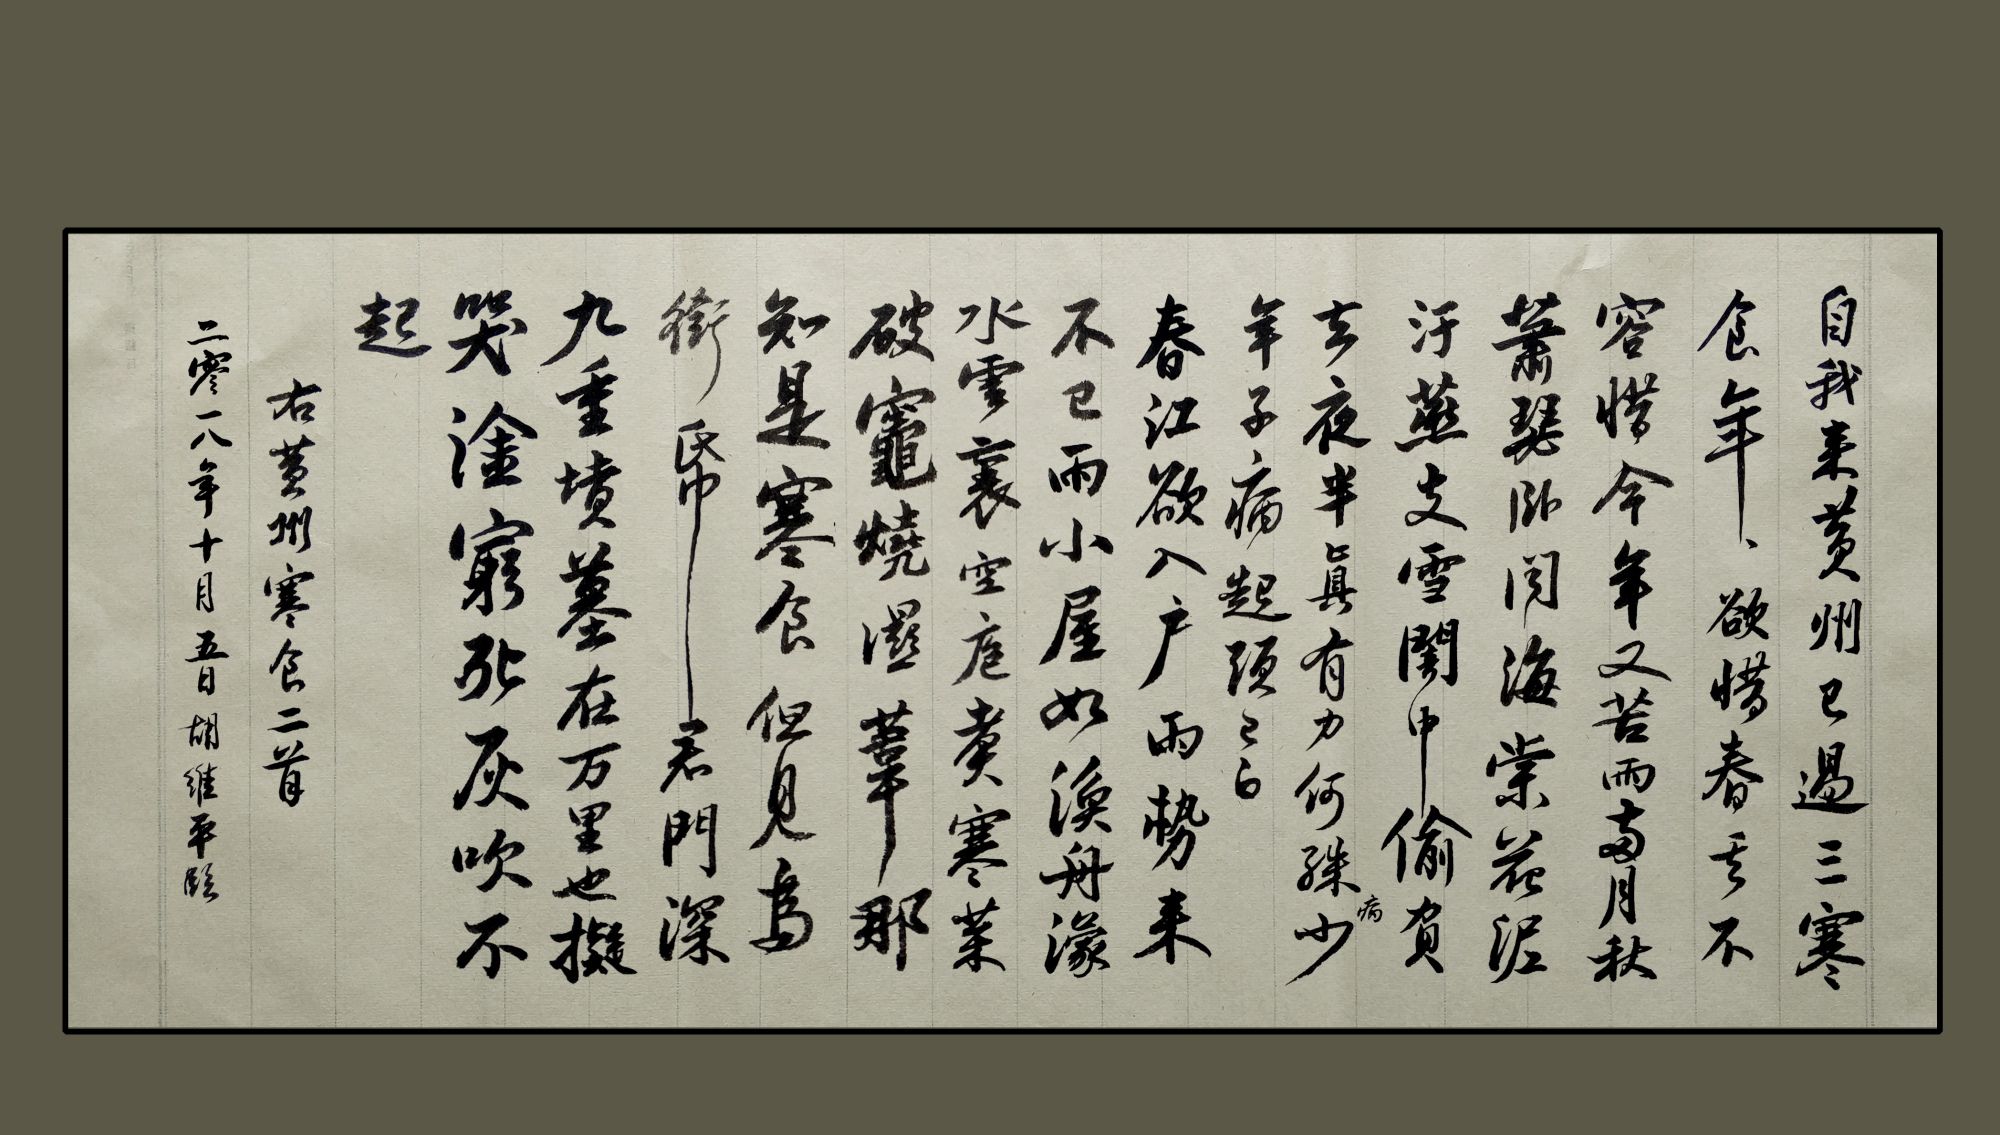 自我来黄州已過三寒
食年、欲惜春去不
容惜今年又苦雨兩月秋
蕭瑟卧闻海棠花泥
汙燕支雪闇中偷負
去夜半真有力何殊少
病
年子病起頭已白
春江欲入户雨勢来
不已雨小屋如漁舟濛
水雲裏空庖煮寒菜
破竈燒濕葦那
知是寒食但見烏
銜帋君門深
九重墳墓在万里也擬
哭塗窮死灰吹不
起
右黄州寒食二首
二零一八年十月五日胡維平臨